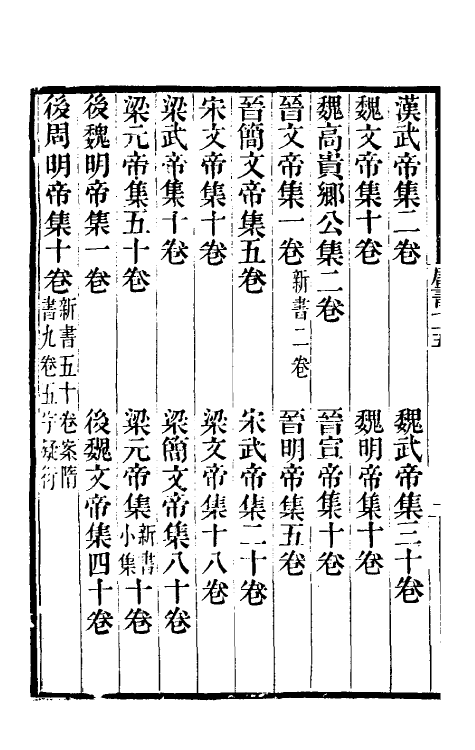 漢武帝集二卷　魏武帝集三十卷
魏文帝集十卷　魏明帝集十卷
魏高貴鄉公集二卷　晉宣帝集十卷
晉文帝集一卷新書二卷　晉明帝集五卷
晉簡文帝集五卷　宋武帝集二十卷
宋文帝集十卷　梁文帝集十八卷
梁武帝集十卷　梁簡文帝集八十卷
梁元帝集五十卷　梁元帝集新書小集十卷
後魏明帝集一卷　後魏文帝集四十卷
後周明帝集十卷新書五十卷案隋書九卷五字疑衍